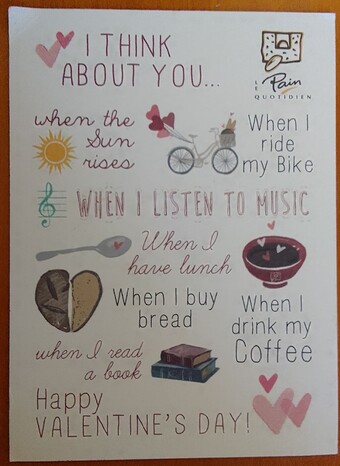 I THINK
ABOUT YOU...
LE Pain
QUOTIDIEN
when the
Sun
rises
When I
ride
my Bike
WHEN I LISTEN TO MUSIC
When I
have lunch
When I buy
bread
When I
drink my
Coffee
when I read
a book
Happy
VALENTINE'S DAY!